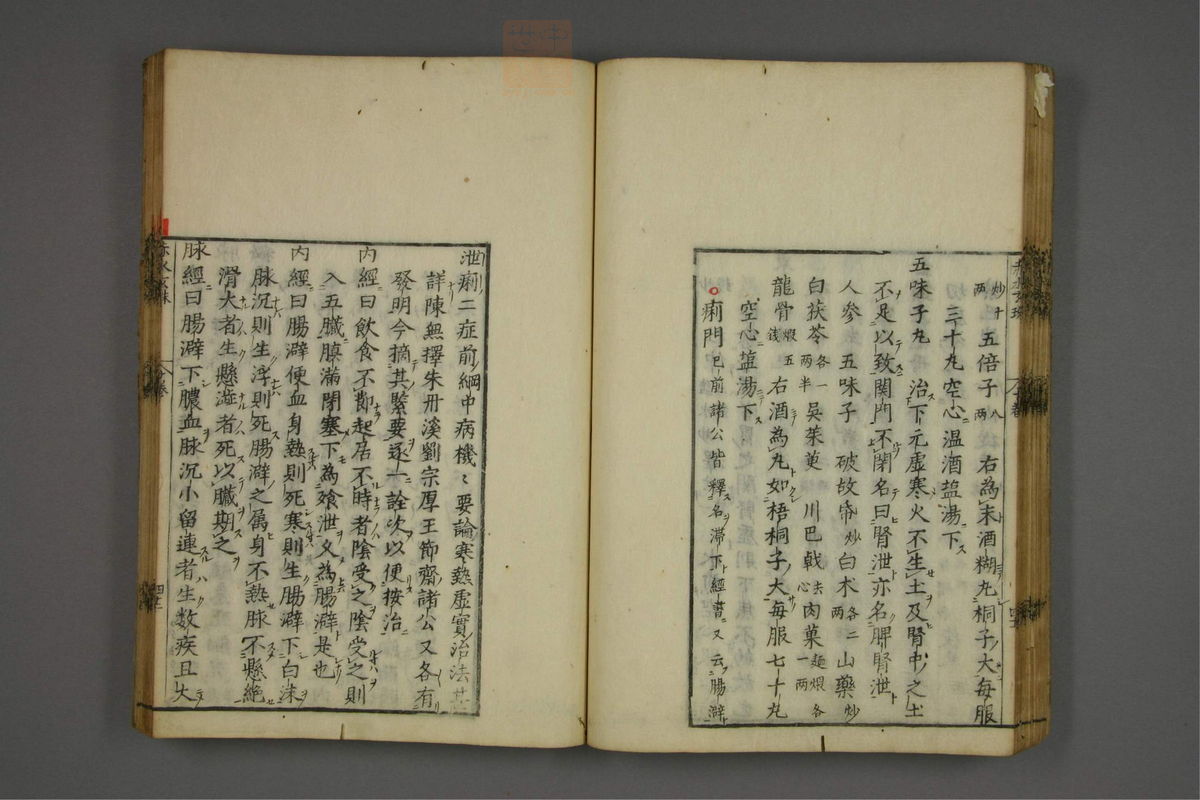 炒十两 五倍子八两 右為末酒糊丸桐子大每服
三十丸空心温酒塩湯下
五味子丸 治下元虚寒火不生土及腎中之土
不足以致関門不閉名曰腎泄亦名脾腎泄
人参 五味子 破故帋炒 白术各二两 山藥炒
白茯苓各一两半 吳茱萸 川巴戟去心 肉菓麺煨各一两
龍骨煆五錢 右酒為丸如梧桐子大每服七十丸
空心塩湯下
痢門 已前諸公皆釋名滞下經書又云腸澼
泄痢二症前綱中病機〻要論寒熱虚實治法甚
詳陳無擇朱丹溪劉宗厚王節齋諸公又各有
發明今摘其緊要逐一詮次以便按治
內經曰飲食不節起居不時者陰受之陰受之則
入五臓䐜滿閉塞下為飱泄又為腸澼是也
內經曰腸澼便血身熱則死寒則生腸澼下白沫
脉沉則生浮則死腸澼之属身不熱脉不懸絕
滑大者生懸濇者死以臓期之
脉經曰腸澼下膿血脉沉小留連者生数疾且大